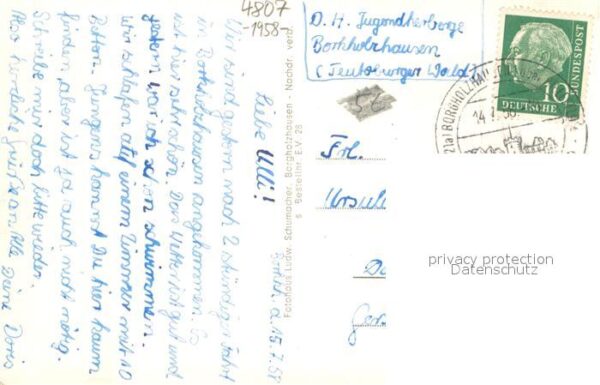 4807
-1958-
D. H. Jugendherberge
Borkholzhausen
(Teutoburger Wald)
DEUTSCHE
BUNDESPOST
10
BORGHOLZHAUSEN
56
Borkh. d. 15.7.58
Liebe Ulli!
Wir sind gestern nach 2 stündiger Fahrt
in Borkholzhausen angekommen. Es
ist hier sehr schön. Das Wetter ist gut und
gestern war ich schon schwimmen.
Wir schlafen auf einem Zimmer mit 10
Betten. Jungens kannst Du hier kaum
finden, aber ist ja auch nicht nötig.
Schreibe mir doch bitte wieder.
Also herzliche Grüße an alle Deine Doris
Fotohaus Ludw. Schumacher, Borgholzhausen - Nachdr. verb.
5 Bestellnr. E.V. 28
Frl.
Ursul
privacy protection
Datenschutz